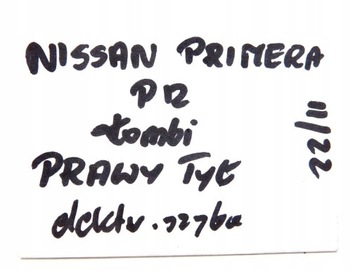 NISSAN PRIMERA
P12
kombi
PRAWY TYŁ
22/11